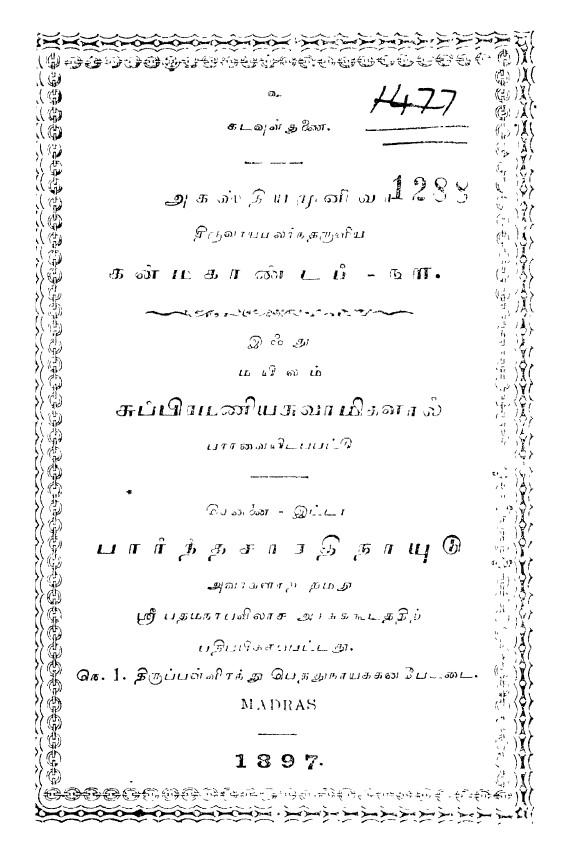 உ
1477
கடவுள்துணை.
அகஸ்தியமுனிவர் 1288
திருவாய்மலர்ந்தருளிய
கன்மகாண்டம் - ௩௱.
இஃது
மயிலம்
சுப்பிரமணியசுவாமிகளால்
பார்வையிடப்பட்டு
சென்னை - இட்டா
பார்த்தசாரதிநாயுடு
அவர்களாற் தமது
ஸ்ரீ பதமநாபவிலாச அச்சுகூடத்திற்
பதிப்பிக்கப்பட்டது.
நெ. 1. திருப்பள்ளிதெரு பெத்துநாயக்கன்பேட்டை.
MADRAS
1897.